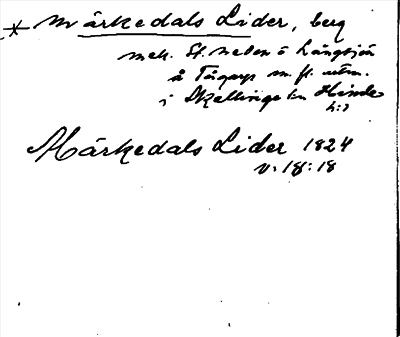 * Märkedals Lider, berg
mell. St. Neden o Långsjön
å Tågarp m. fl. utm.
i Skällinge sn Himle
h:d
Märkedals Lider 1824
v. 18:18